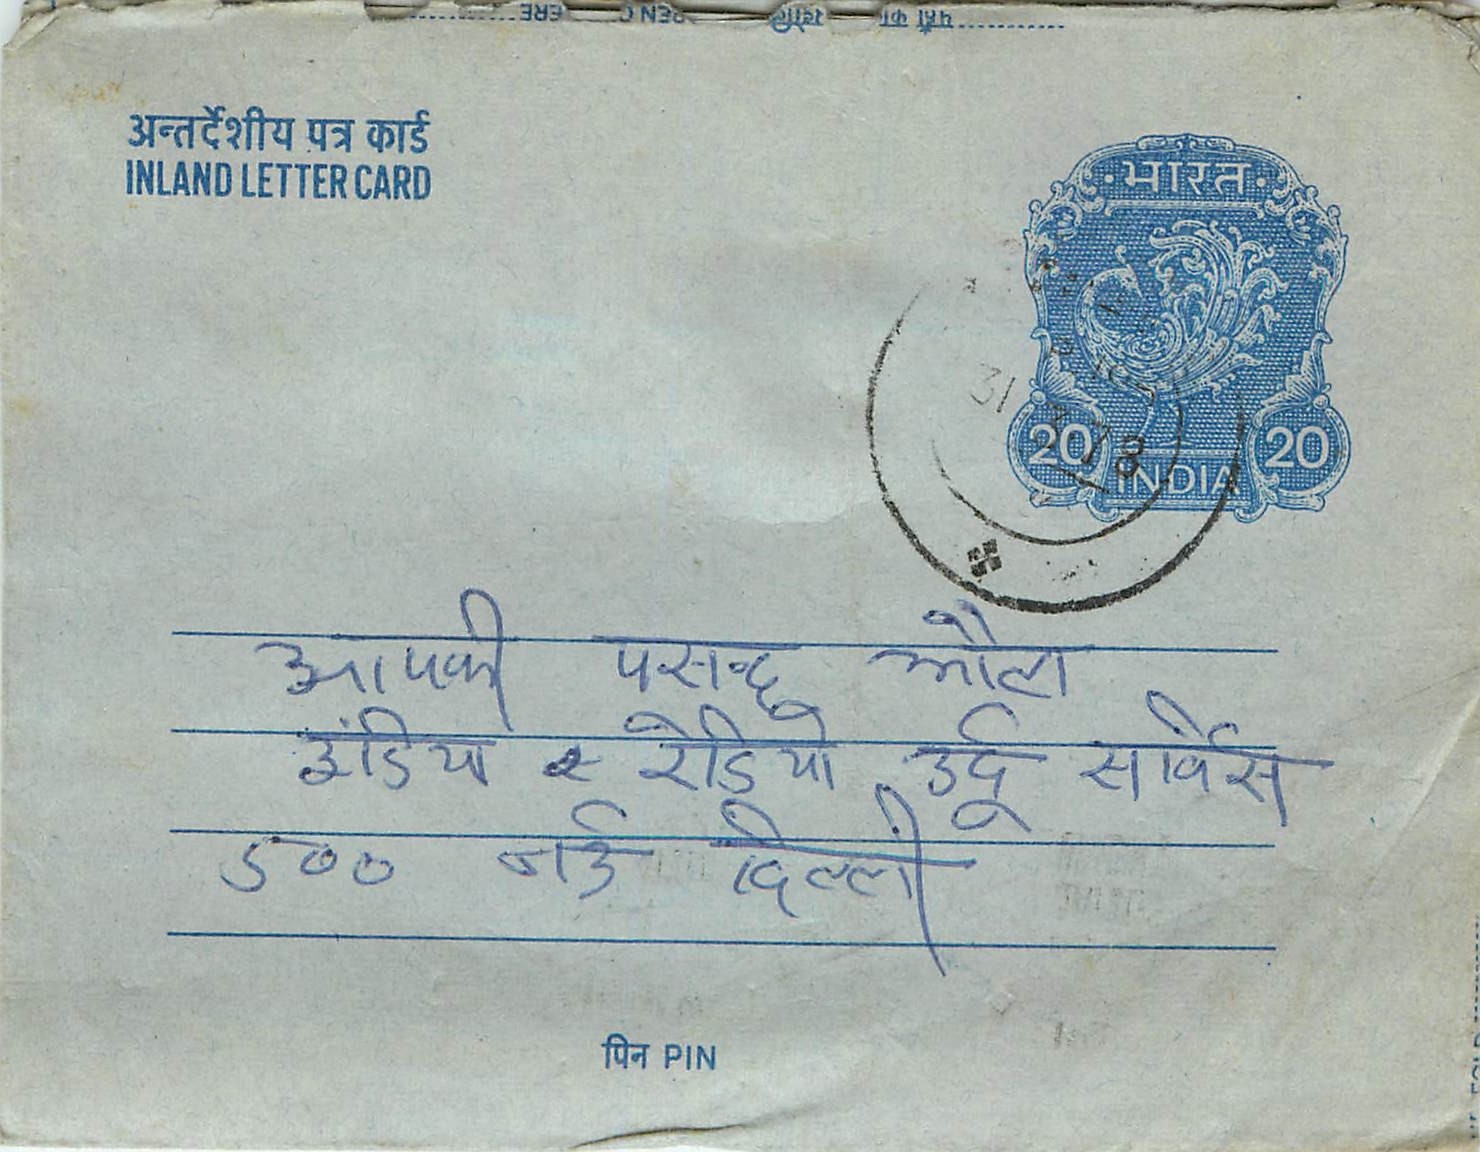 अन्तर्देशीय पत्र कार्ड
INLAND LETTER CARD
भारत
20 20
INDIA
31
78
आपकी पसन्द औल
इंडिया रेडियो उर्दू सर्विस
५०० नई दिल्ली
पिन PIN